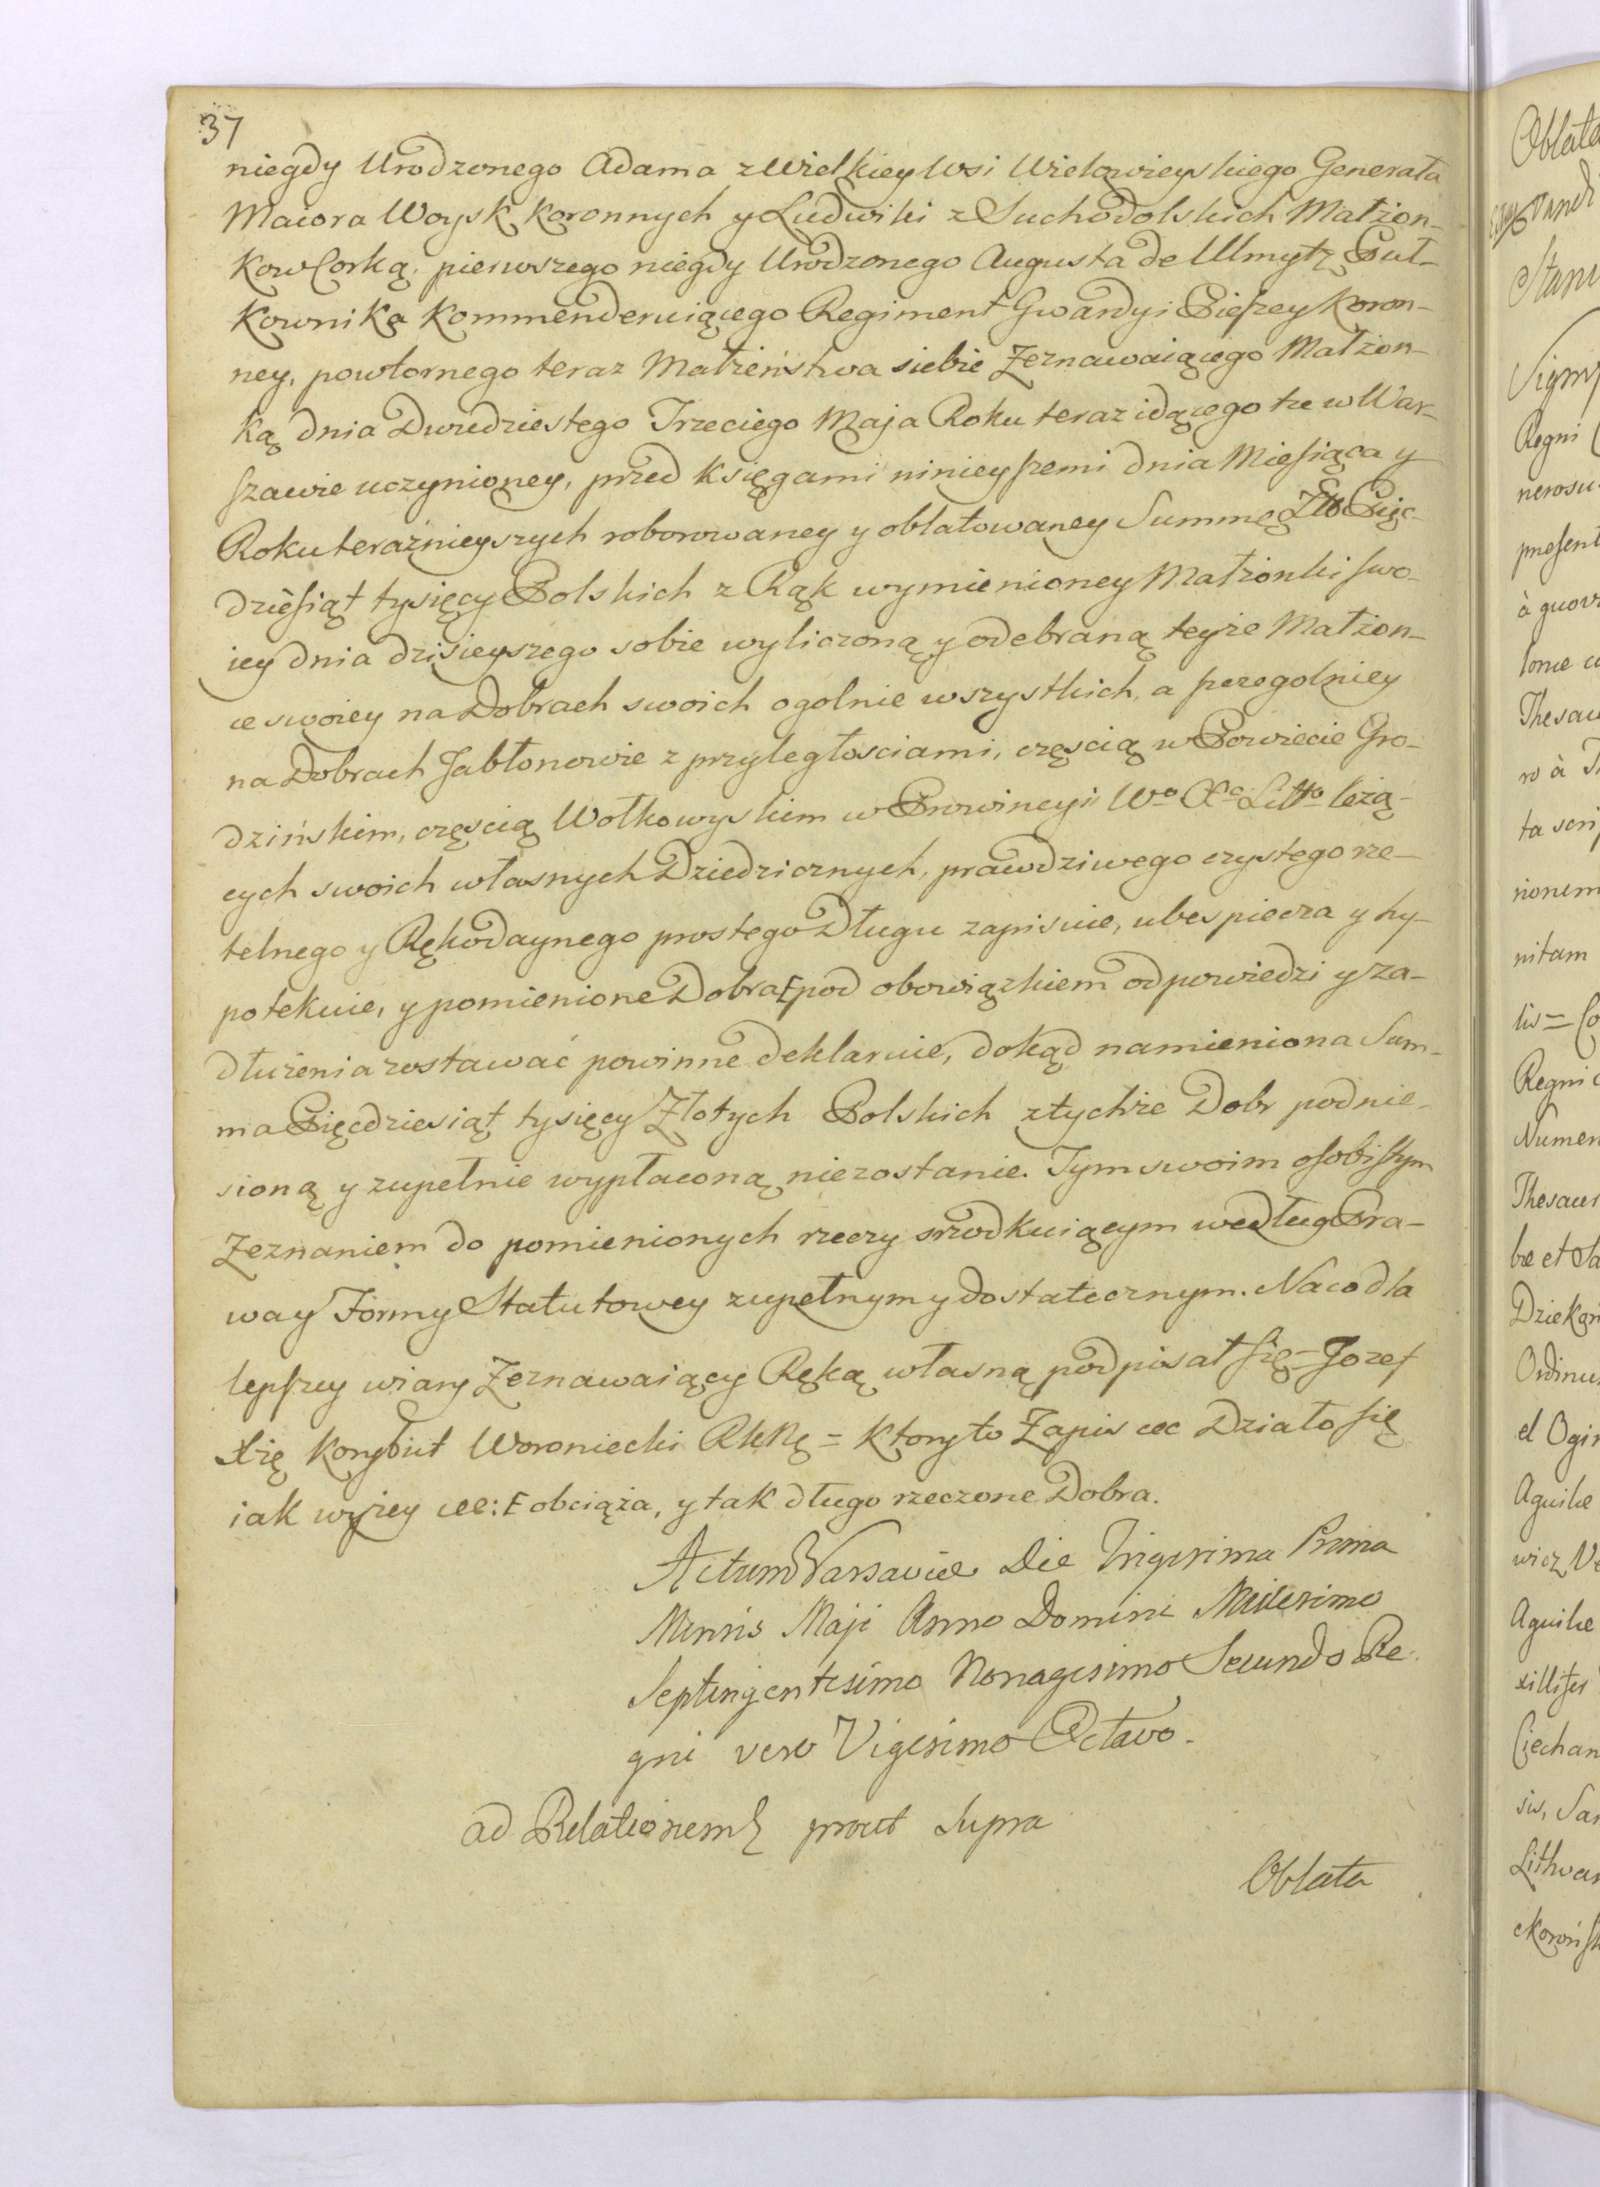 37
niegdy Urodzonego Adama z Wielkiey Wsi Wielowieyskiego Generała
Maiora Woysk Koronnych y Ludwiki z Suchodolskich Małżon-
kow Corką, pierwszego niegdy Urodzonego Augusta de Ulmytz Puł-
kownika Kommenderuiącego Regiment Gwardyi Pieszey Koron-
ney, powtornego teraz Małżeństwa siebie Zeznawaiącego Małżon-
ką dnia Dwudziestego Trzeciego Maja Roku teraz idącego tu w War-
szawie uczynioney, przed Księgami ninieyszemi dnia Miesiąca y
Roku teraznieyszych roborowaney y oblatowaney Summę Pięć-
dziesiąt tysięcy Polskich z Rąk wymienioney Małżonki swo-
iey dnia dzisieyszego sobie wyliczoną y odebraną teyże Małżon-
ce swoiey na Dobrach swoich ogolnie wszystkich, a szczegolniey
na Dobrach Jabłonowie z przyległosciami, częscią w Powiecie Gro-
dzińskim, częscią Wołkowyskim w Prowincyi Wo Xa Litto leżą-
cych swoich własnych Dziedzicznych, prawdziwego czystego rze-
telnego y Rękodaynego prostego Długu zapisuie, ubespiecza y hy-
potekuie, y pomienione Dobra F pod obowiązkiem odpowiedzi y za-
dłużenia zostawać powinne deklaruie, dokąd namieniona Sum-
ma Pięćdziesiąt tysięcy Złotych Polskich z tychże Dobr podnie-
sioną y zupełnie wypłaconą niezostanie. Tym swoim osobistym
Zeznaniem do pomienionych rzeczy srzodkuiącym według Pra-
wa y Formy Statutowey zupełnym y dostatecznym. Na co dla
lepszey wiary Zeznawaiący Ręką własną podpisał się = Jozef
Xżę Korybut Woroniecki = Ktory to Zapis etc Działo się
iak wyżey etc: F obciąża, y tak długo rzeczone Dobra.
Actum Varsaviæ Die Trigesima Prima
Mensis Maji Anno Domini Millesimo
Septingentesimo Nonagesimo Secundo Re-
gni vero Vigesimo Octavo.
ad Relationem prout Supra
Oblata
Oblata
Stani
Regni
present
Thesau
ro à
ta scri
nionem
nitam
lis = Co
Regni
Numer
Thesaur
Dziekań
Ordinu
el Ogi
Aquilæ
wicz
Aquilæ
Ciechan
sis, Sa
Lithva